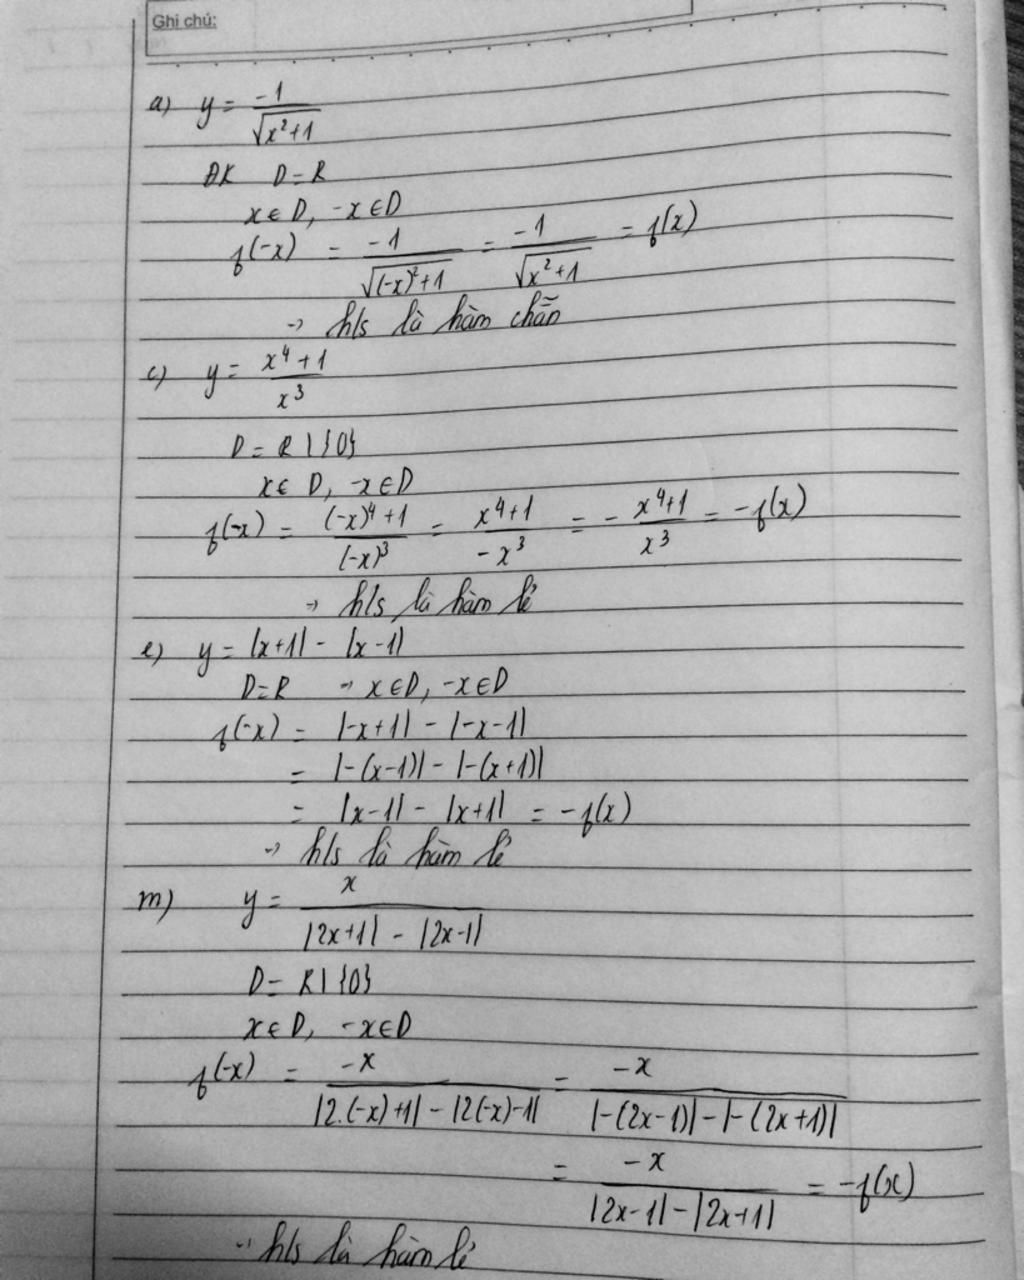 Ghi chú:
a) y = -1 / √(x²+1)
ĐK D = R
x ∈ D, -x ∈ D
f(-x) = -1 / √((-x)²+1) = -1 / √(x²+1) = f(x)
→ h/s là hàm chẵn
c) y = (x⁴+1) / x³
D = R \ }0}
x ∈ D, -x ∈ D
f(-x) = ((-x)⁴+1) / (-x)³ = (x⁴+1) / -x³ = - (x⁴+1) / x³ = -f(x)
→ h/s là hàm lẻ
e) y = |x+1| - |x-1|
D = R → x ∈ D, -x ∈ D
f(-x) = |-x+1| - |-x-1|
= |-(x-1)| - |-(x+1)|
= |x-1| - |x+1| = -f(x)
→ h/s là hàm lẻ
m) y = x / (|2x+1| - |2x-1|)
D = R \ }0}
x ∈ D, -x ∈ D
f(-x) = -x / (|2.(-x)+1| - |2(-x)-1|) = -x / (|-(2x-1)| - |-(2x+1)|)
= -x / (|2x-1| - |2x+1|) = -f(x)
→ h/s là hàm lẻ